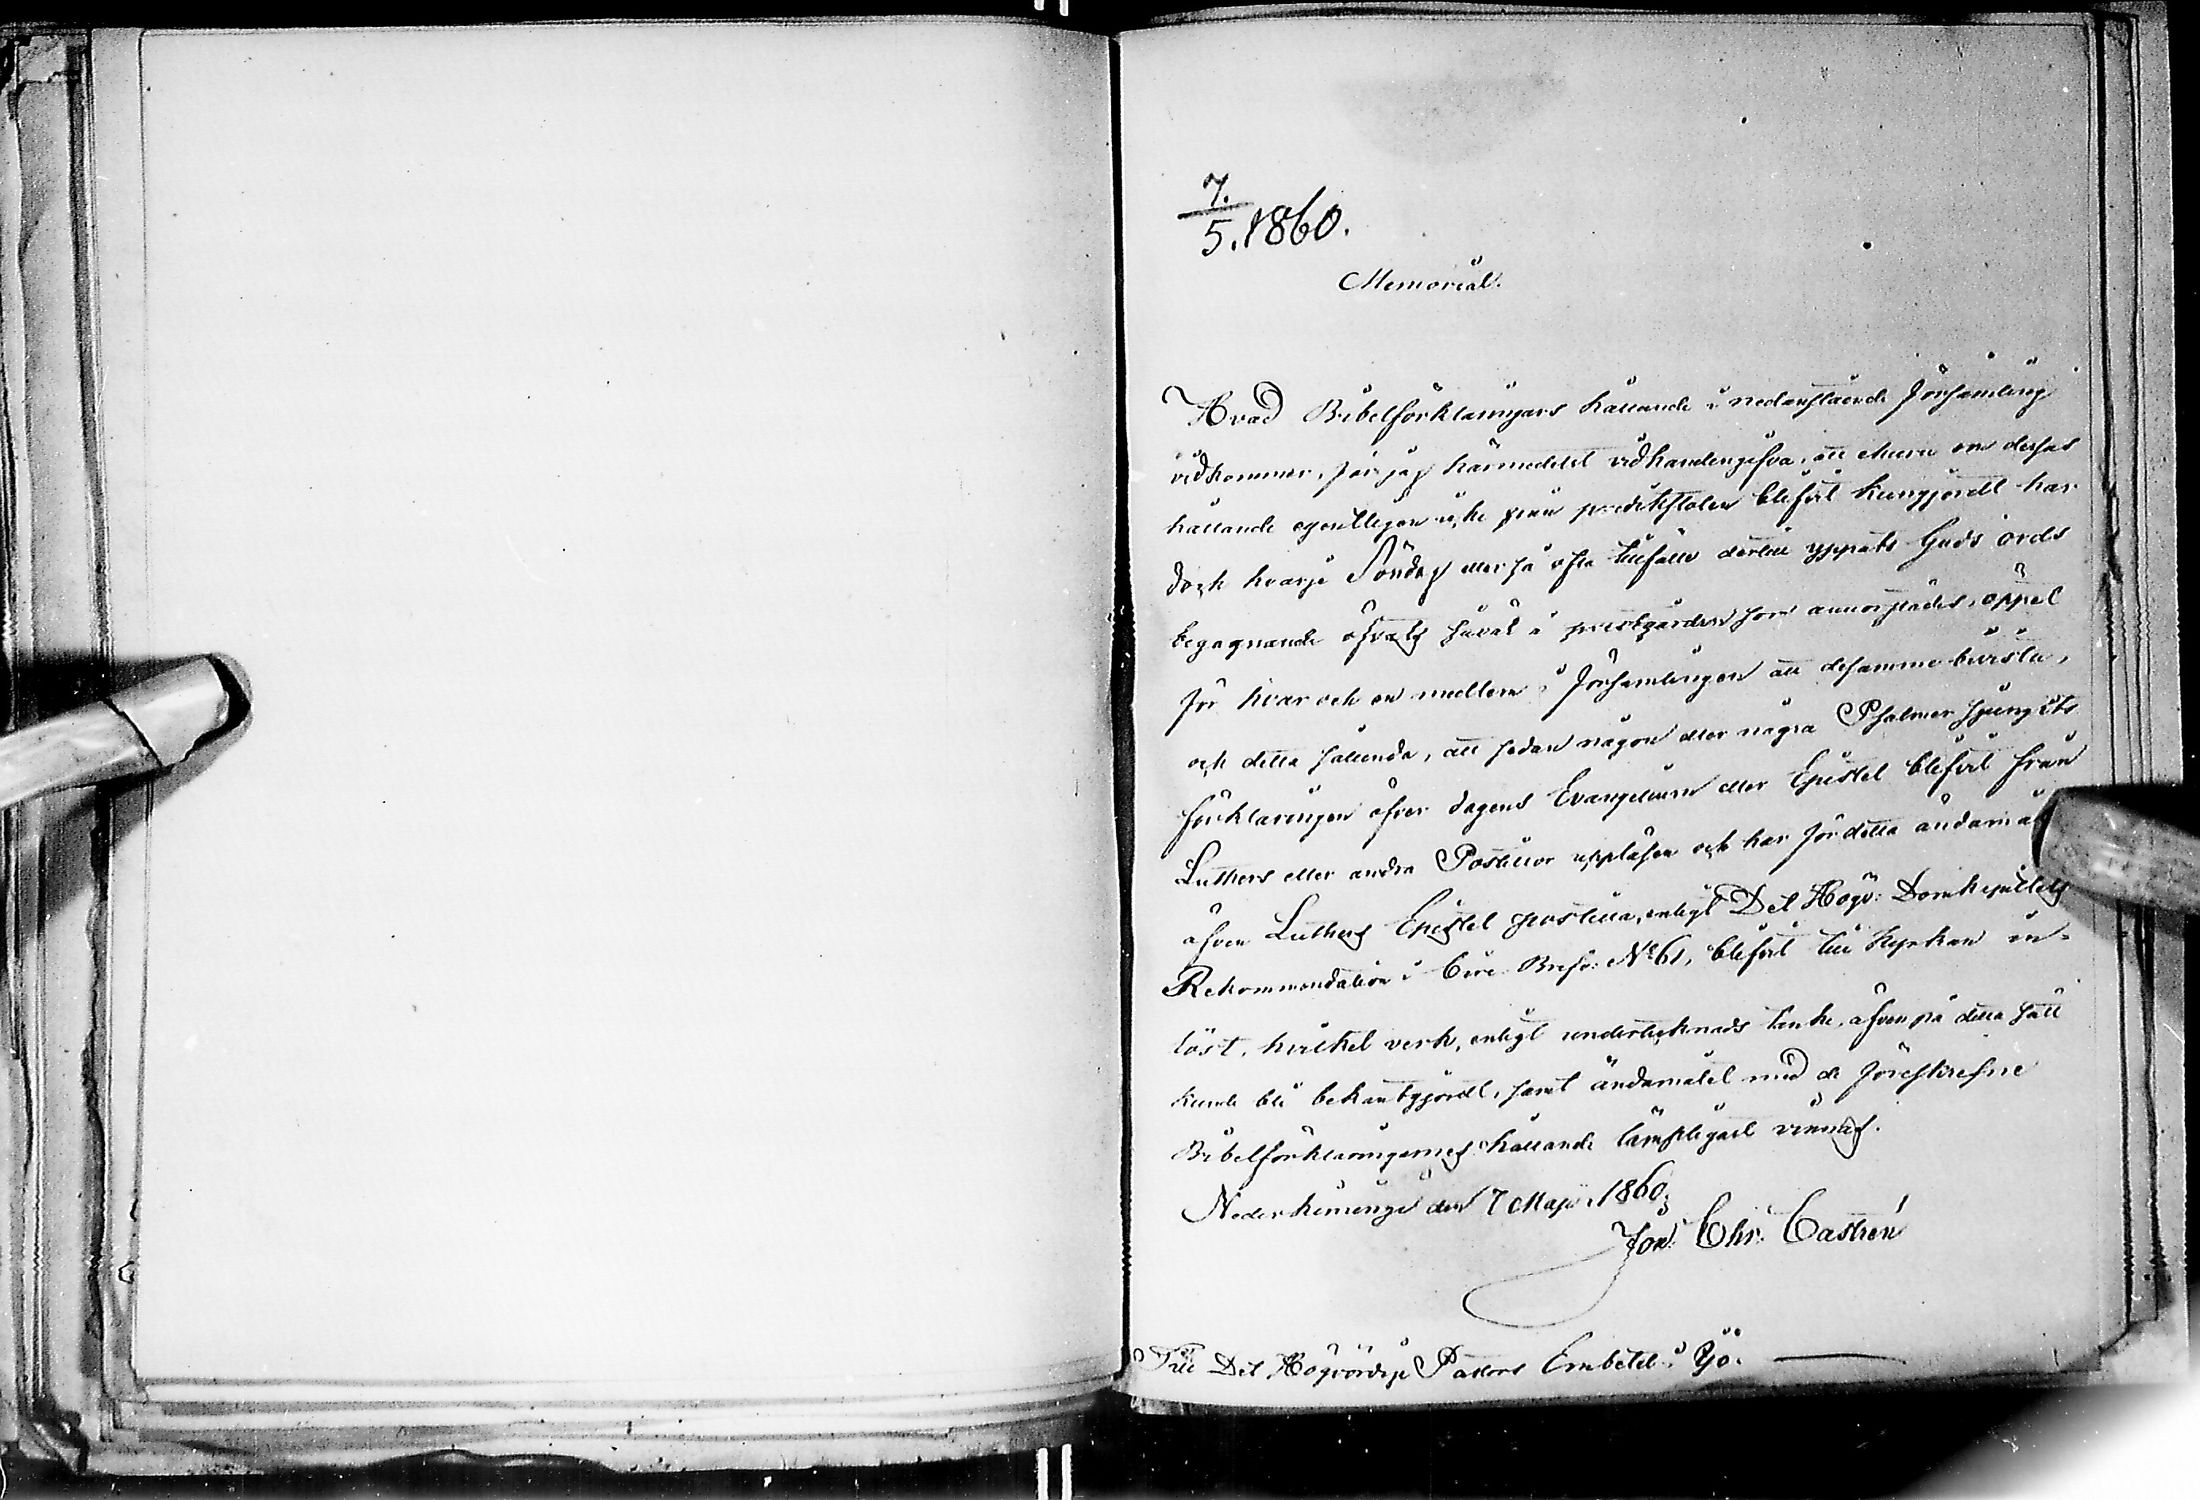 7.
5. 1860.
Memorial.
Hvad Bibelförklaringars hållande i nedanstående Församling
vidkommer, får jag härmedelst vidhandengifva, att ehuru om dessas
hållande egentligen icke från predikstolen blifvit kungjordt har
dock hvarje Söndag eller så ofta tillfälle dertill yppats Guds ords
begagnande öfvats såväl i prestgården som annorstädes, öppet
för hvar och en medlem i Församlingen att desamme bivista,
och detta sålunda, att sedan någon eller några Psalmer sjungits
förklaringen öfver dagens Evangelium eller Epistel blifvit från
Luthers eller andra Postillor uppläsen och har för detta ändamål
äfven Luthers Epistel postilla, enligt Det Högv: Domkapitlets
Rekommendation i Circ. Bref: No 61, blifvit till Kyrkan in-
löst, hvilket verk, enligt undertecknads tanke, äfven på detta sätt
kunde bli bekantgjordt, samt ändamålet med de föreskrefne
Bibelförklaringarnes hållande lämpligast vinnas.
Neder Kiminge den 7 Maji 1860.
Joh. Chr. Castrén
Till Det Högvördige Pastors Embetet i Ijo.